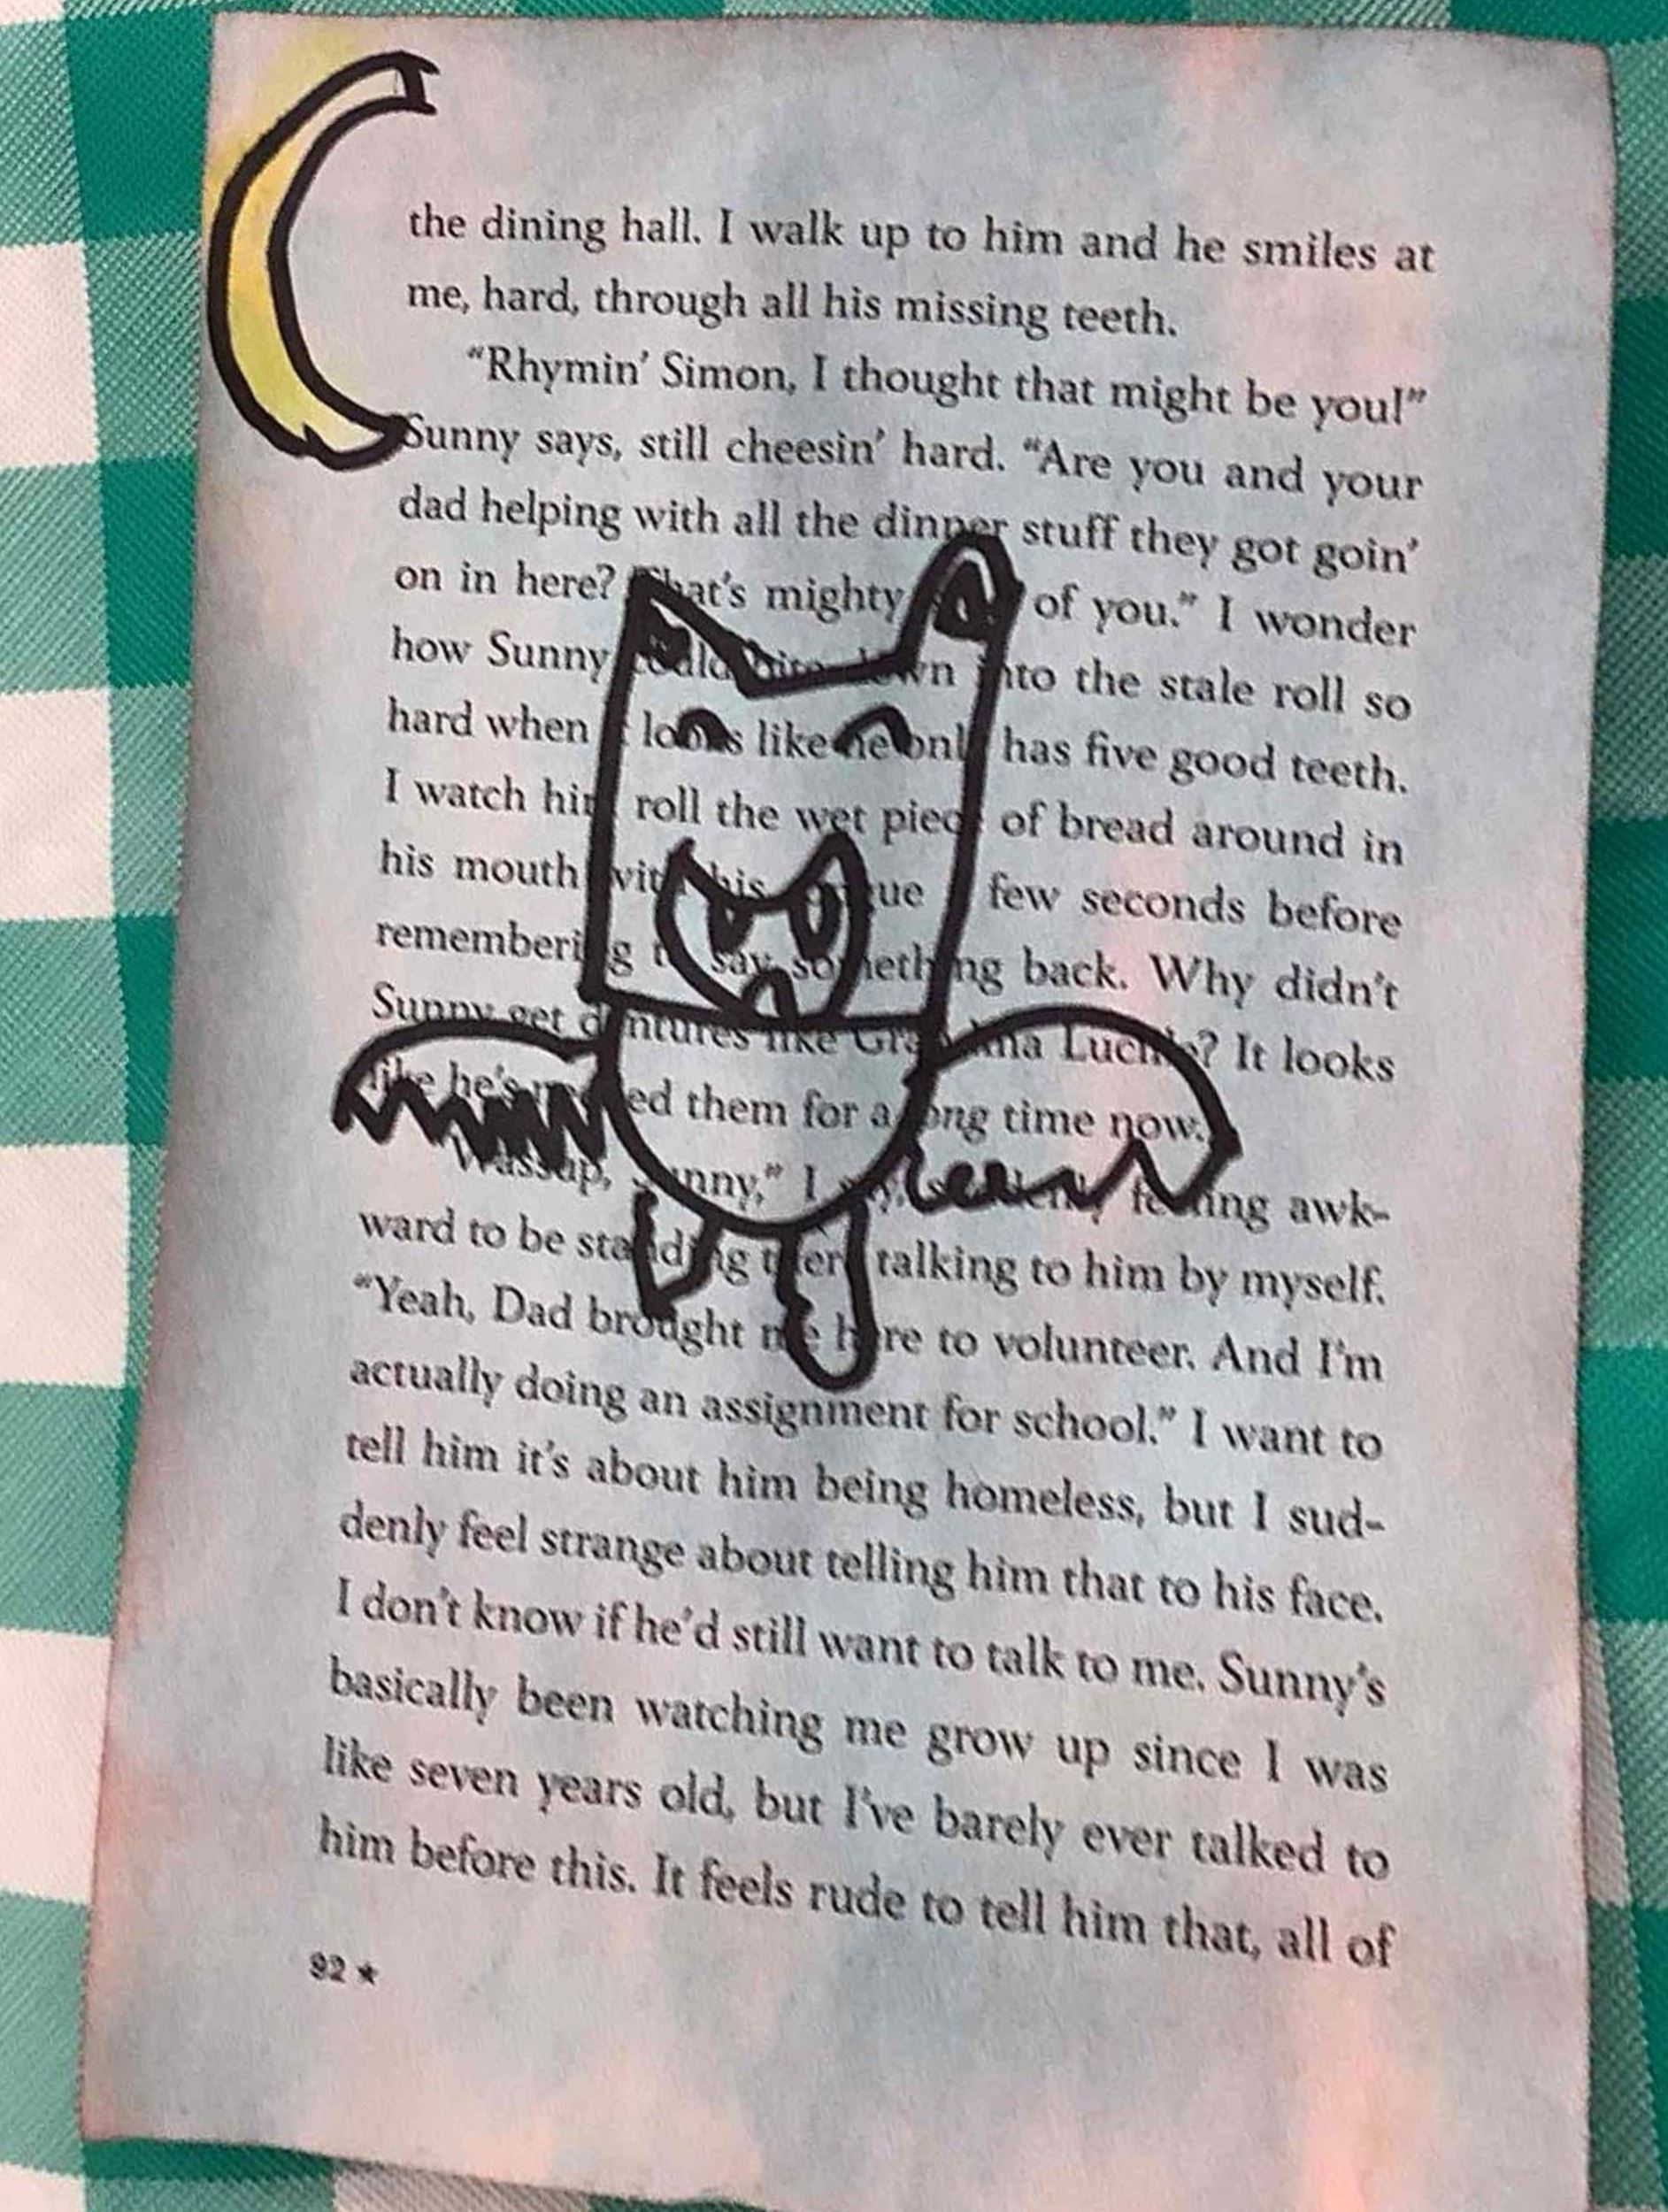 the dining hall. I walk up to him and he smiles at
me, hard, through all his missing teeth.
“Rhymin’ Simon, I thought that might be you!”
Sunny says, still cheesin’ hard. “Are you and your
dad helping with all the dinner stuff they got goin’
on in here? That’s mighty of you.” I wonder
how Sunny could bite down into the stale roll so
hard when it looks like he only has five good teeth.
I watch him roll the wet piece of bread around in
his mouth with his tongue few seconds before
remembering to say something back. Why didn’t
Sunny get dentures like Grandma Lucille? It looks
like he’s needed them for a long time now.
“Wassup, Sunny,” I say, suddenly feeling awk-
ward to be standing there talking to him by myself.
“Yeah, Dad brought me here to volunteer. And I’m
actually doing an assignment for school.” I want to
tell him it’s about him being homeless, but I sud-
denly feel strange about telling him that to his face.
I don’t know if he’d still want to talk to me. Sunny’s
basically been watching me grow up since I was
like seven years old, but I’ve barely ever talked to
him before this. It feels rude to tell him that, all of
92 ★